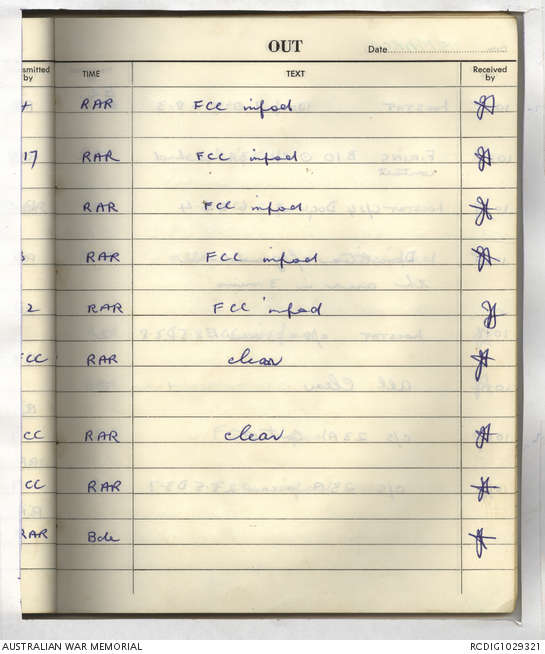 OUT
Date
smitted by TIME TEXT Received by
RAR FCC infod
17 RAR FCC infod
RAR FCC infod
RAR FCC infod
2 RAR FCC infod
FCC RAR clear
CC RAR clear
CC RAR
RAR Bde
AUSTRALIAN WAR MEMORIAL RCDIG1029321